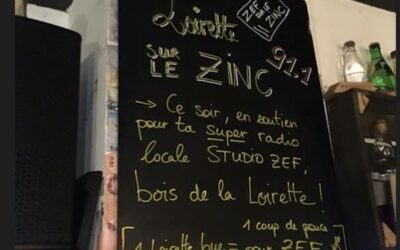 Loirette
ZEF
SUR LE
ZINC
SUR
LE ZINC
91.1
→ Ce soir, en soutien
pour ta super radio
locale STUDIO ZEF,
bois de la Loirette !
1 coup de pouce
[1 Loirette bue = pour ZEF